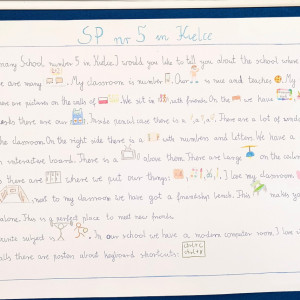 SP nr 5 in Kielce
mary School number 5 in Kielce. I would like to tell you about the school where
re are many . My classroom is number . Our is nice and teaches . My
re are pictures on the walls of . We sit in with friends. On the we have
esks there are our . Inside pencil case there is a , a , a . There are a lot of windo
the classroom. On the right side there is a with numbers and letters. We have a
n interactive board. There is a above them. There are large on the ceilin
s there are where we put our things: I love my classroom
next to my classroom we have got a friendship bench. This makes
alone. This is a perfect place to meet new friends.
favourite subject is . In our school we have a modern computer room. I love
alls there are posters about keyboard shortcuts: